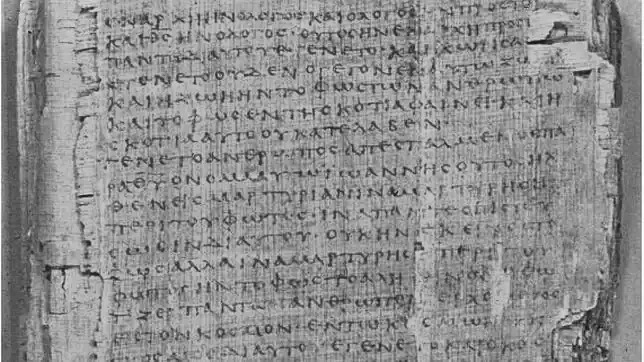 ΕΝ ΑΡΧΗ ΗΝ Ο ΛΟΓΟϹ ΚΑΙ Ο ΛΟΓΟϹ ΗΝ ΠΡΟϹ ΤΟ
ΚΑΙ ΘϹ ΗΝ Ο ΛΟΓΟϹ · ΟΥΤΟϹ ΗΝ ΕΝ ΑΡΧΗ ΠΡΟϹ
ΠΑΝΤΑ ΔΙ ΑΥΤΟΥ ΕΓΕΝΕΤΟ · ΚΑΙ ΧΩΡΙϹ Α
ΕΓΕΝΕΤΟ ΟΥΔΕΝ Ο ΓΕΓΟΝΕΝ ΕΝ ΑΥΤΩ ΖΩ
ΚΑΙ Η ΖΩΗ ΗΝ ΤΟ ΦΩϹ ΤΩΝ ΑΝΘΡΩΠΩ
ΚΑΙ ΤΟ ΦΩϹ ΕΝ ΤΗ ϹΚΟΤΙΑ ΦΑΙΝΕΙ · ΚΑΙ Η
ϹΚΟΤΙΑ ΑΥΤΟ ΟΥ ΚΑΤΕΛΑΒΕΝ ·
ΕΓΕΝΕΤΟ ΑΝΘΡΩΠΟϹ ΑΠΕϹΤΑΛΜΕΝΟϹ ΠΑ
ΡΑ ΘΥ ΟΝΟΜΑ ΑΥΤΩ ΙΩΑΝΝΗϹ ΟΥΤΟϹ ΗΛ
ΘΕΝ ΕΙϹ ΜΑΡΤΥΡΙΑΝ ΙΝΑ ΜΑΡΤΥΡΗϹΗ
ΠΕΡΙ ΤΟΥ ΦΩΤΟϹ · ΙΝΑ ΠΑΝΤΕϹ ΠΙϹΤΕΥ
ϹΩϹΙΝ ΔΙ ΑΥΤΟΥ · ΟΥΚ ΗΝ ΕΚΕΙΝΟϹ ΤΟ
ΦΩϹ ΑΛΛΑ ΙΝΑ ΜΑΡΤΥΡΗϹΗ ΠΕΡΙ ΤΟΥ
ΦΩΤΟϹ ΗΝ ΤΟ ΦΩϹ ΤΟ ΑΛΗ Ο ΦΩ
ΤΙΖΕΙ ΠΑΝΤΑ ΑΝΘΡΩΠΟΝ
ΕΙϹ ΤΟΝ ΚΟϹΜΟΝ · ΕΝ ΤΩ ΚΟϹΜΩ ΗΝ
ΚΟϹΜΟϹ ΔΙ ΑΥΤΟΥ ΕΓΕΝΕΤΟ ΚΑΙ Ο ΚΟϹ